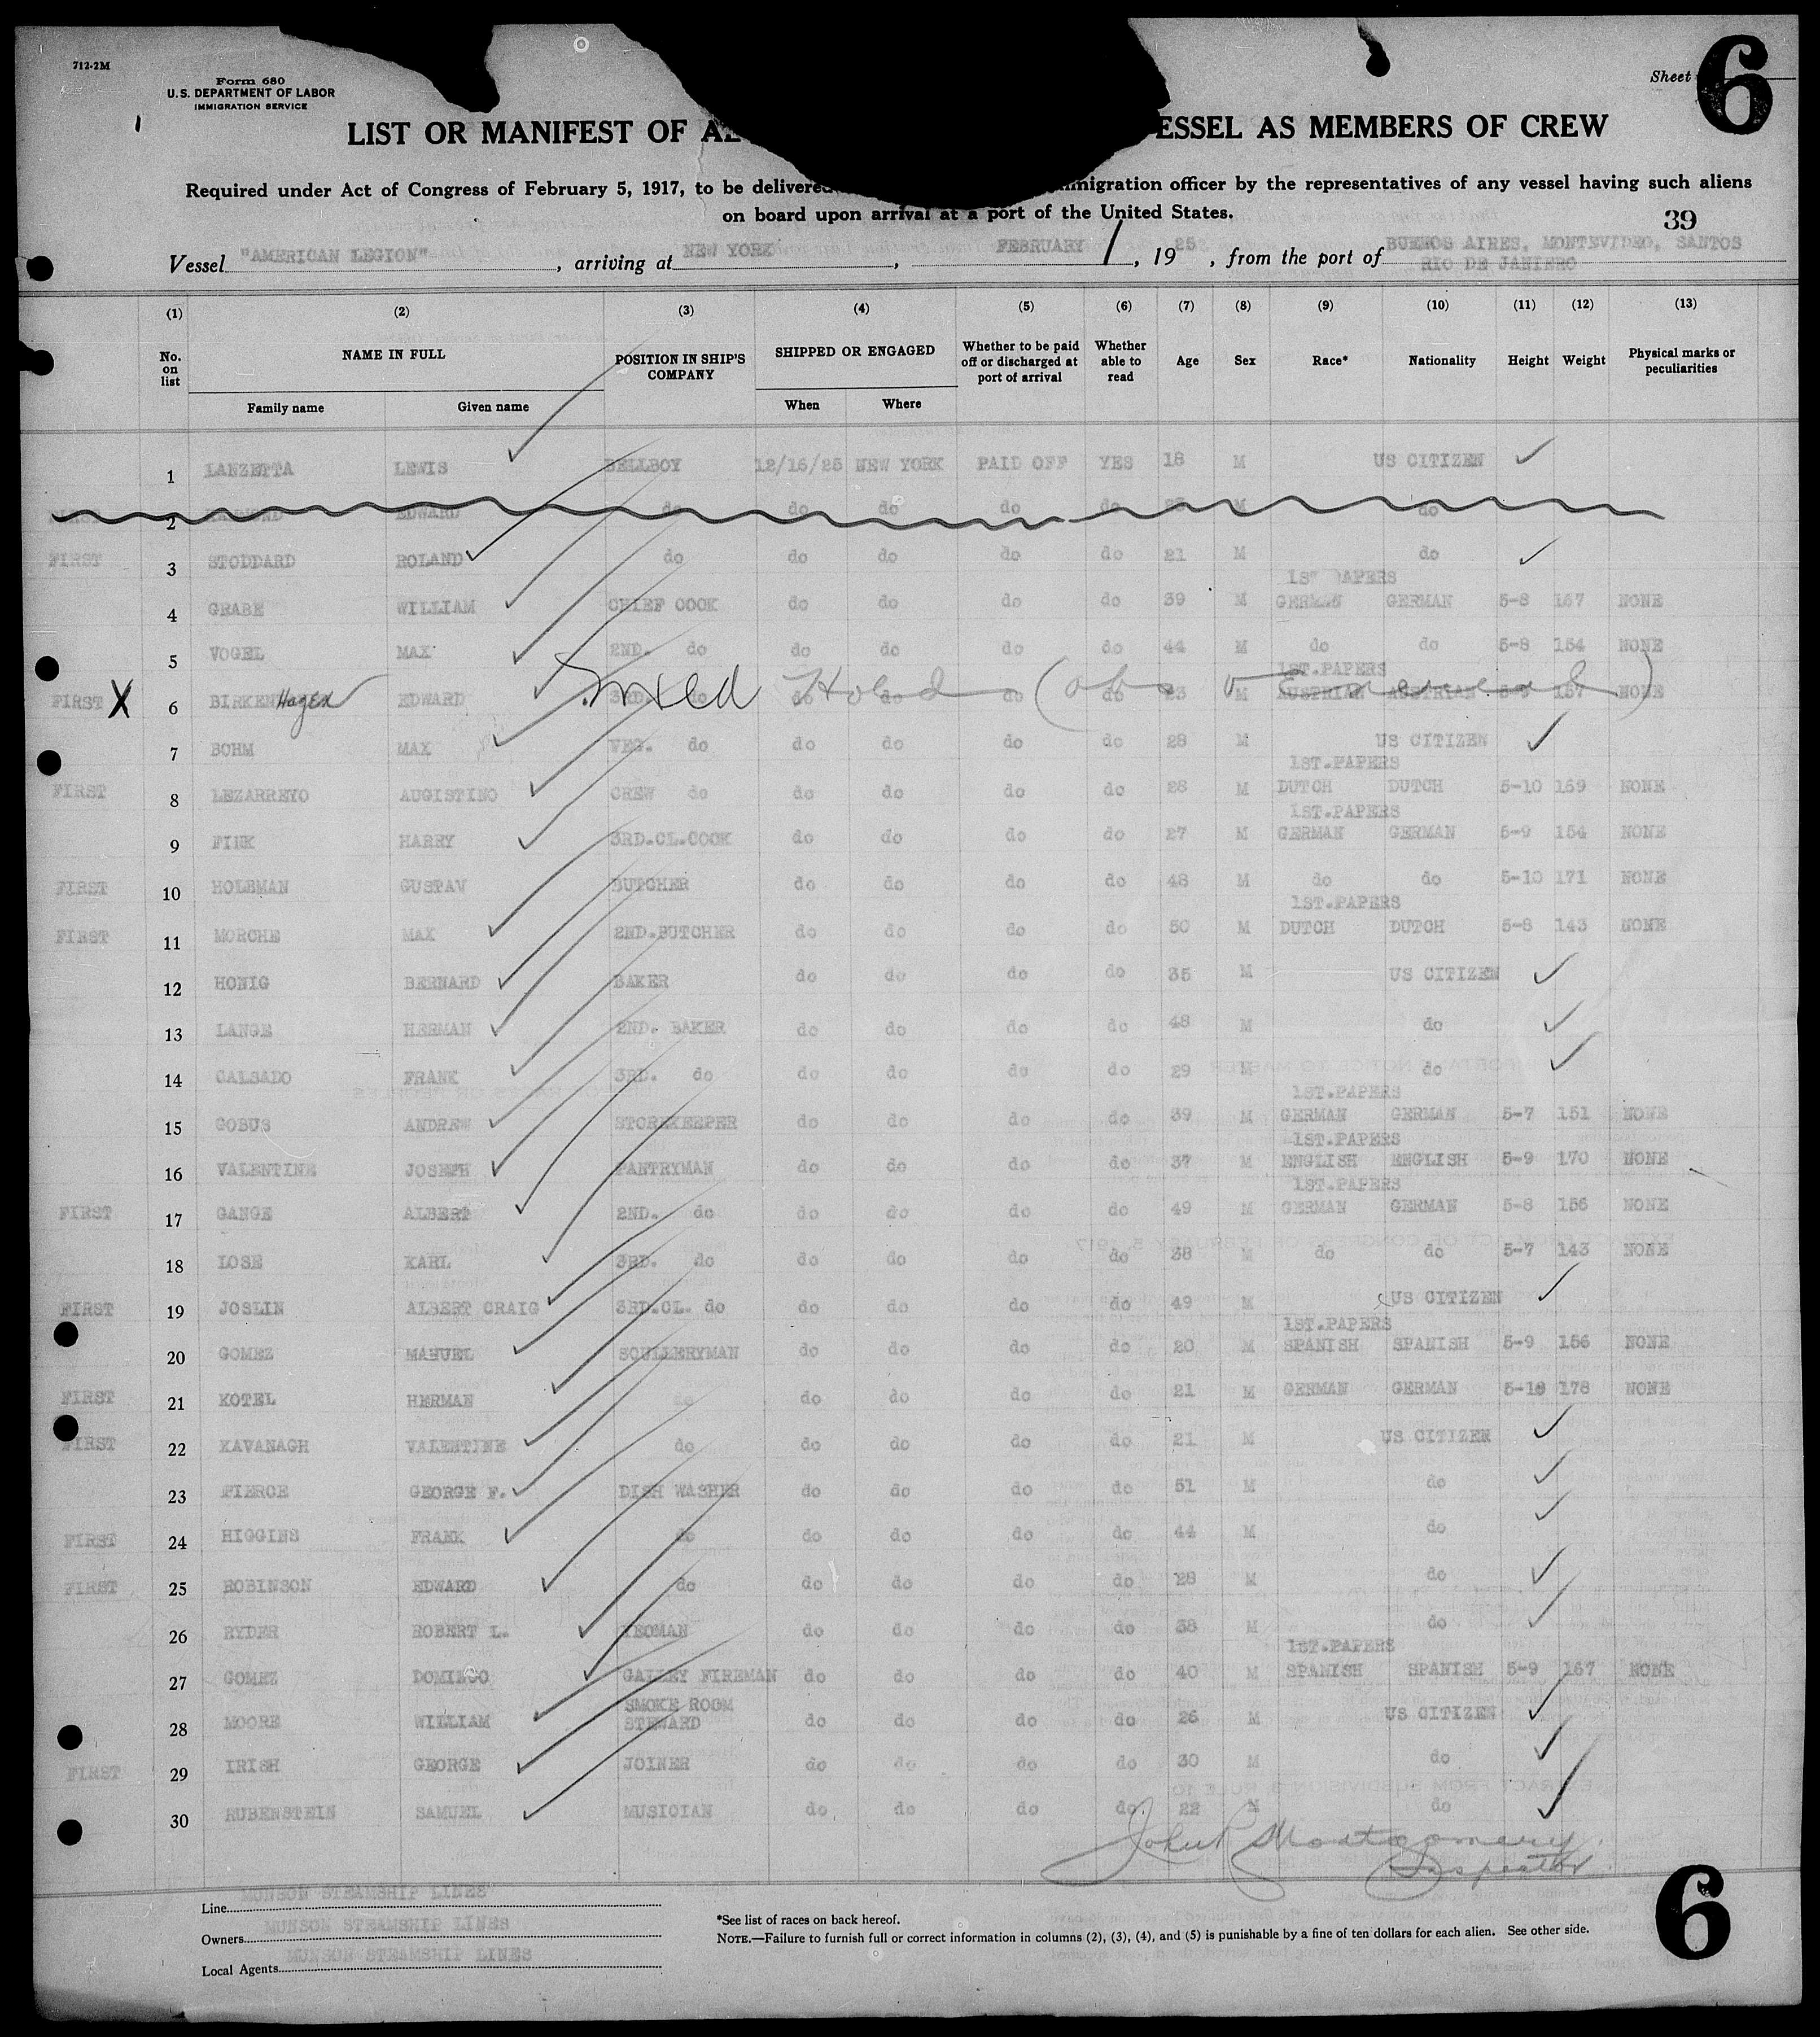 712-2M
Form 680
U.S. DEPARTMENT OF LABOR
IMMIGRATION SERVICE
Sheet 6
LIST OR MANIFEST OF ESSEL AS MEMBERS OF CREW
Required under Act of Congress of February 5, 1917, to be delivered migration officer by the representatives of any vessel having such aliens
on board upon arrival at a port of the United States.
39
Vessel "AMERICAN LEGION", arriving at NEW YORK, FEBRUARY 1, 1925, from the port of BUENOS AIRES, MONTEVIDEO, SANTOS
RIO DE JANIERO
(1) (2) (3) (4) (5) (6) (7) (8) (9) (10) (11) (12) (13)
No. on list NAME IN FULL POSITION IN SHIP'S COMPANY SHIPPED OR ENGAGED Whether to be paid off or discharged at port of arrival Whether able to read Age Sex Race* Nationality Height Weight Physical marks or peculiarities
Family name Given name When Where
1 LANZETTA LEWIS BELLBOY 12/16/25 NEW YORK PAID OFF YES 18 M US CITIZEN
FIRST 2 EDWARD do do do do do 23 M do
FIRST 3 STODDARD ROLAND do do do do do 21 M do
1ST PAPERS
4 GRABE WILLIAM CHIEF COOK do do do do 39 M GERMAN GERMAN 5-8 167 NONE
5 VOGEL MAX 2ND. do do do do do 44 M do do 5-8 154 NONE
1ST.PAPERS
FIRST X 6 BIRKEN Hagen EDWARD 3RD. do do do do do 23 M AUSTRIAN AUSTRIAN 157 NONE
7 BOHM MAX VEG. do do do do do 28 M US CITIZEN
1ST.PAPERS
FIRST 8 LEZARREYO AUGISTINO CREW do do do do do 28 M DUTCH DUTCH 5-10 169 NONE
1ST.PAPERS
9 FINK HARRY 3RD.CL.COOK do do do do 27 M GERMAN GERMAN 5-9 154 NONE
FIRST 10 HOLEMAN GUSTAV BUTCHER do do do do 48 M do do 5-10 171 NONE
1ST.PAPERS
FIRST 11 MORCHE MAX 2ND.BUTCHER do do do do 50 M DUTCH DUTCH 5-8 143 NONE
12 HONIG BERNARD BAKER do do do do 35 M US CITIZEN
13 LANGE HERMAN 2ND. BAKER do do do do 48 M do
14 CALSADO FRANK 3RD. do do do do do 29 M do
1ST.PAPERS
15 GOBUS ANDREW STOREKEEPER do do do do 39 M GERMAN GERMAN 5-7 151 NONE
1ST.PAPERS
16 VALENTINE JOSEPH PANTRYMAN do do do do 37 M ENGLISH ENGLISH 5-9 170 NONE
1ST.PAPERS
FIRST 17 GANGE ALBERT 2ND. do do do do do 49 M GERMAN GERMAN 5-8 156 NONE
18 LOSE KARL 3RD. do do do do do 38 M do do 5-7 143 NONE
FIRST 19 JOSLIN ALBERT CRAIG 3RD.CL. do do do do do 49 M US CITIZEN
1ST.PAPERS
20 GOMEZ MANUEL SCULLERYMAN do do do do 20 M SPANISH SPANISH 5-9 156 NONE
FIRST 21 KOTEL HERMAN do do do do do 21 M GERMAN GERMAN 5-10 178 NONE
FIRST 22 KAVANAGH VALENTINE do do do do do 21 M US CITIZEN
23 PIERCE GEORGE F. DISH WASHER do do do do 51 M do
FIRST 24 HIGGINS FRANK do do do do do 44 M do
FIRST 25 ROBINSON EDWARD do do do do do 28 M do
26 RYDER ROBERT L. YEOMAN do do do do 38 M do
1ST.PAPERS
27 GOMEZ DOMINGO GALLEY FIREMAN do do do do 40 M SPANISH SPANISH 5-9 167 NONE
28 MOORE WILLIAM SMOKE ROOM STEWARD do do do do 26 M US CITIZEN
FIRST 29 IRISH GEORGE JOINER do do do do 30 M do
30 RUBENSTEIN SAMUEL MUSICIAN do do do do 22 M do
Montgomery
Inspector
Line MUNSON STEAMSHIP LINES
Owners MUNSON STEAMSHIP LINES
Local Agents MUNSON STEAMSHIP LINES
*See list of races on back hereof.
NOTE.—Failure to furnish full or correct information in columns (2), (3), (4), and (5) is punishable by a fine of ten dollars for each alien. See other side.
6